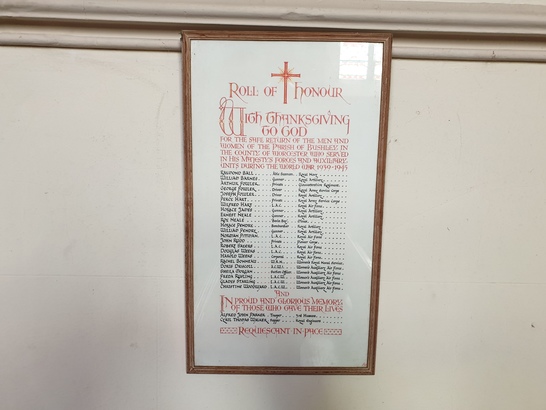 Roll of Honour
With Thanksgiving
to God
for the safe return of the men and
women of the Parish of Bushley in
the County of Worcester who served
in His Majesty's Forces and Auxiliary
Units during the World War 1939-1945
Raymond Ball Royal Navy
William Barnes Gunner Royal Artillery
Arthur Fowler Private Gloucestershire Regiment
George Fowler Driver Royal Army Service Corps
Joseph Fowler Driver Royal Artillery
Peace Hart Private Royal Army Service Corps
Wilfred Hart L.A.C. Royal Air Force
Horace Jaynes Gunner Royal Artillery
Ernest Neale Gunner Royal Artillery
Roy Neale
Horace Pendry Bombardier Royal Artillery
William Pendry Gunner Royal Artillery
Norman Pittham L.A.C. Royal Air Force
John Rudd Private Pioneer Corps
Robert Vivers L.A.C. Royal Air Force
Douglas Weeks L.A.C. Royal Air Force
Harold Weeks Corporal Royal Air Force
Rachel Bowmere Women's Royal Naval Service
Doris Driscoll A.C.W.1 Women's Auxiliary Air Force
Sheila Dungan Section Officer Women's Auxiliary Air Force
Freda Rayling L.A.C.W. Women's Auxiliary Air Force
Gladys Starling L.A.C.W. Women's Auxiliary Air Force
Christine Woodward L.A.C.W. Women's Auxiliary Air Force
and
In proud and glorious memory
of those who gave their lives
Alfred John Parker Trooper
Cyril Thomas Warner
Requiescant in pace